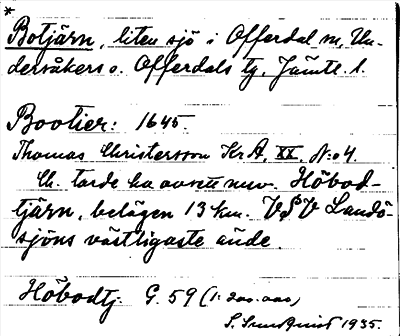 *
Botjärn, liten sjö i Offerdal sn, Un-
dersåkers o. Offerdals tg, Jämtl. l.
Bootier: 1645.
Thomas Christersson Kr A, XX. N:o 4.
Ch. torde ha avsett nuv. Höbod-
tjärn, belägen 13 km. VSV Landö-
sjöns västligaste ände.
Höbodtj. G. 59 (1:200.000)
S. 1935.